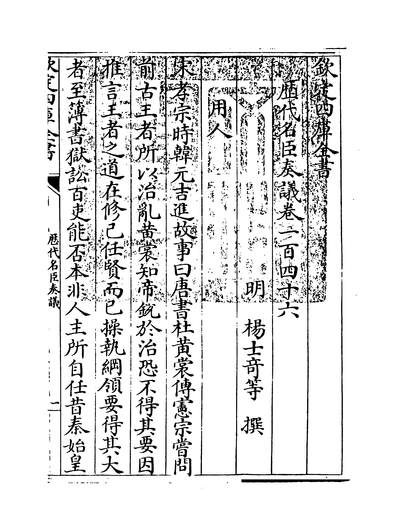 欽定四庫全書
歷代名臣奏議卷一百四十六
明　楊士竒等　撰
用人
宋孝宗時韓元吉進故事曰唐書杜黄裳傳憲宗嘗問
前古王者所以治亂黄裳知帝銳於治恐不得其要因
推言王者之道在修己任賢而已操執綱領要得其大
者至簿書獄訟百吏能否本非人主所自任昔秦始皇
欽定四庫全書
歷代名臣奏議
一